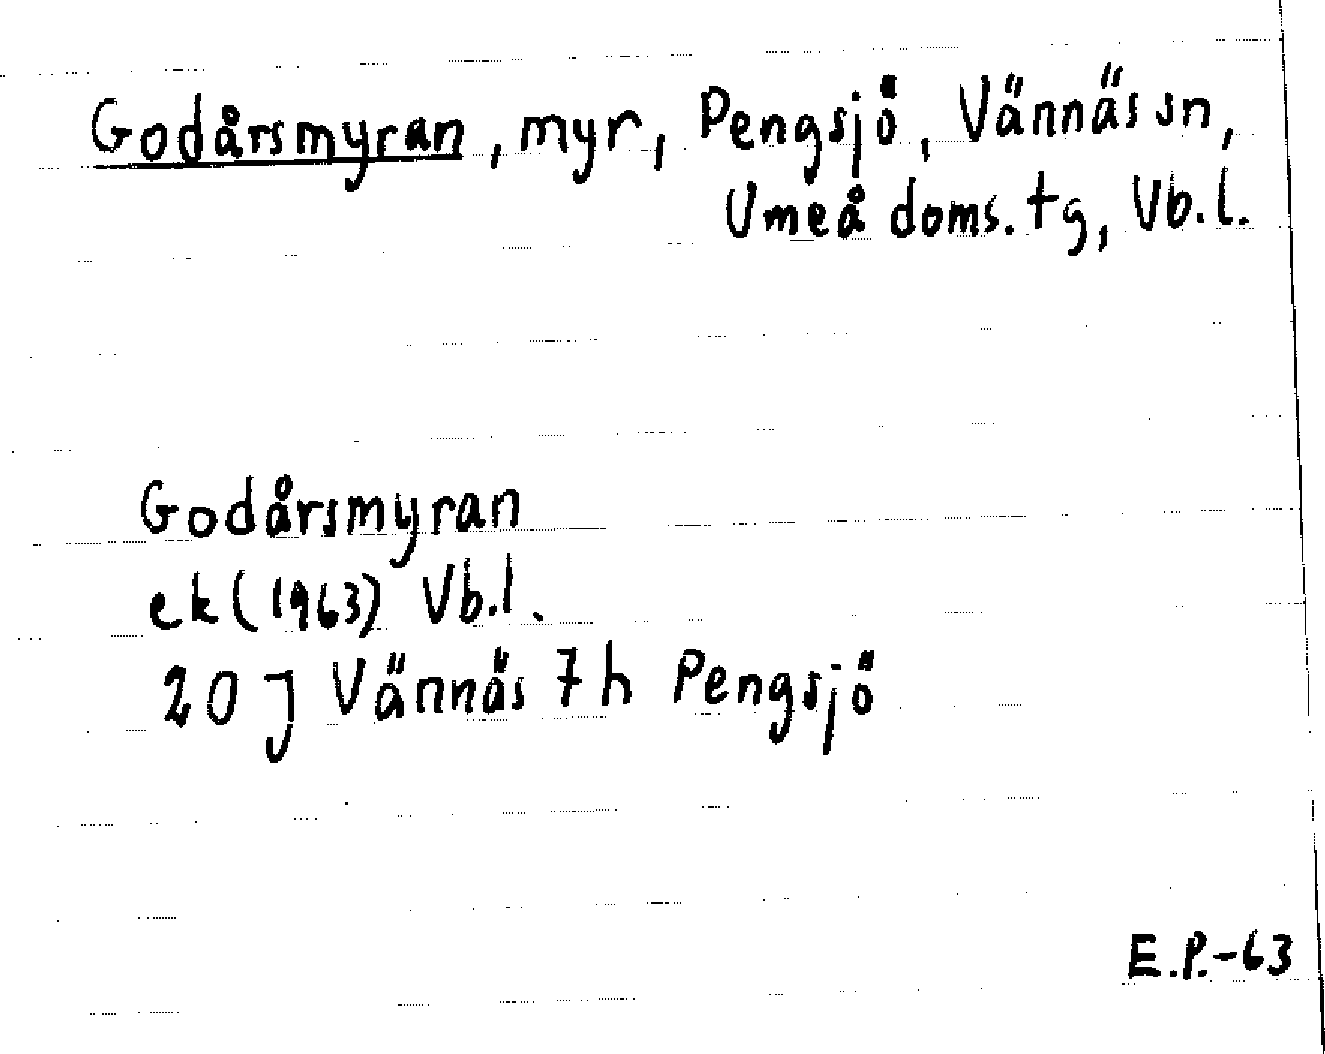 Godårsmyran, myr, Pengsjö, Vännäs sn,
Umeå doms. tg, Vb.l.
Godårsmyran
ek (1963) Vb.l.
20 J Vännäs 7 h Pengsjö
E.P.-63